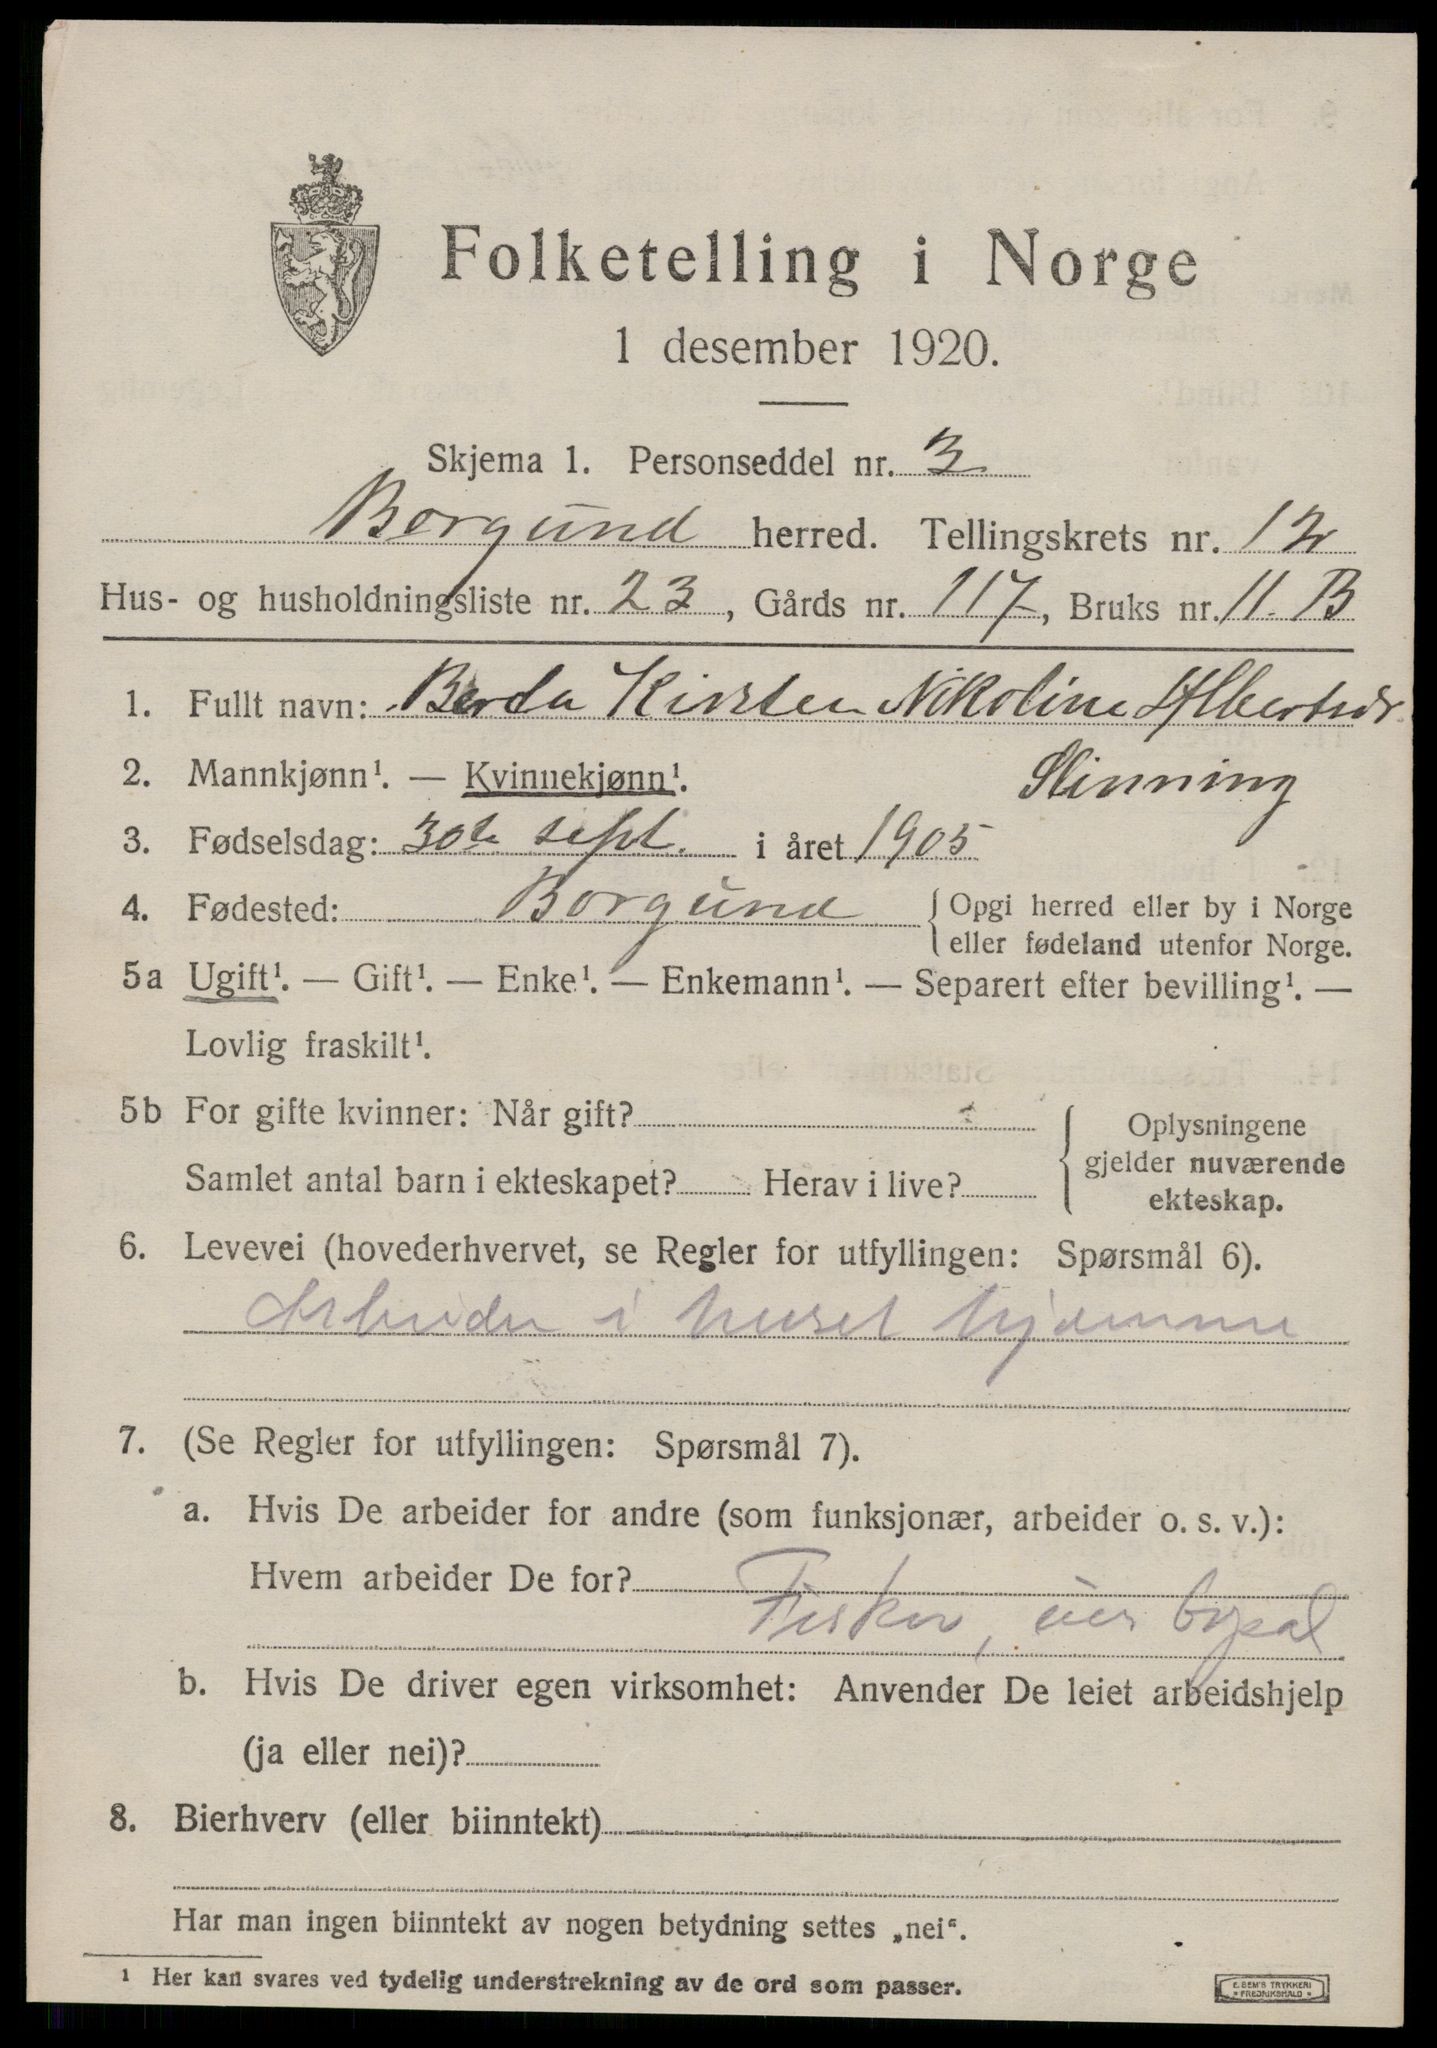 Folketelling i Norge
1 desember 1920.
Skjema 1. Personseddel nr. 3
Borgund herred. Tellingskrets nr. 12
Hus- og husholdningsliste nr. 23, Gårds nr. 117, Bruks nr. 11. B
1. Fullt navn: Berta Kirsten Nikoline Albertsdr
2. Mannkjønn¹. — Kvinnekjønn¹. Slinning
3. Fødselsdag: 30te sept. i året 1905
4. Fødested: Borgund { Opgi herred eller by i Norge
eller fødeland utenfor Norge.
5a Ugift¹. — Gift¹. — Enke¹. — Enkemann¹. — Separert efter bevilling¹. —
Lovlig fraskilt¹.
5b For gifte kvinner: Når gift? { Oplysningene
gjelder nuværende
Samlet antal barn i ekteskapet? Herav i live?
ekteskap.
6. Levevei (hovederhvervet, se Regler for utfyllingen: Spørsmål 6).
Arbeider i huset hjemme
7. (Se Regler for utfyllingen: Spørsmål 7).
a. Hvis De arbeider for andre (som funksjonær, arbeider o. s. v.):
Hvem arbeider De for?
Fisker,
b. Hvis De driver egen virksomhet: Anvender De leiet arbeidshjelp
(ja eller nei)?
8. Bierhverv (eller biinntekt)
Har man ingen biinntekt av nogen betydning settes „nei“.
¹ Her kan svares ved tydelig understrekning av de ord som passer.
E. SEM'S TRYKKERI
FREDRIKSHALD